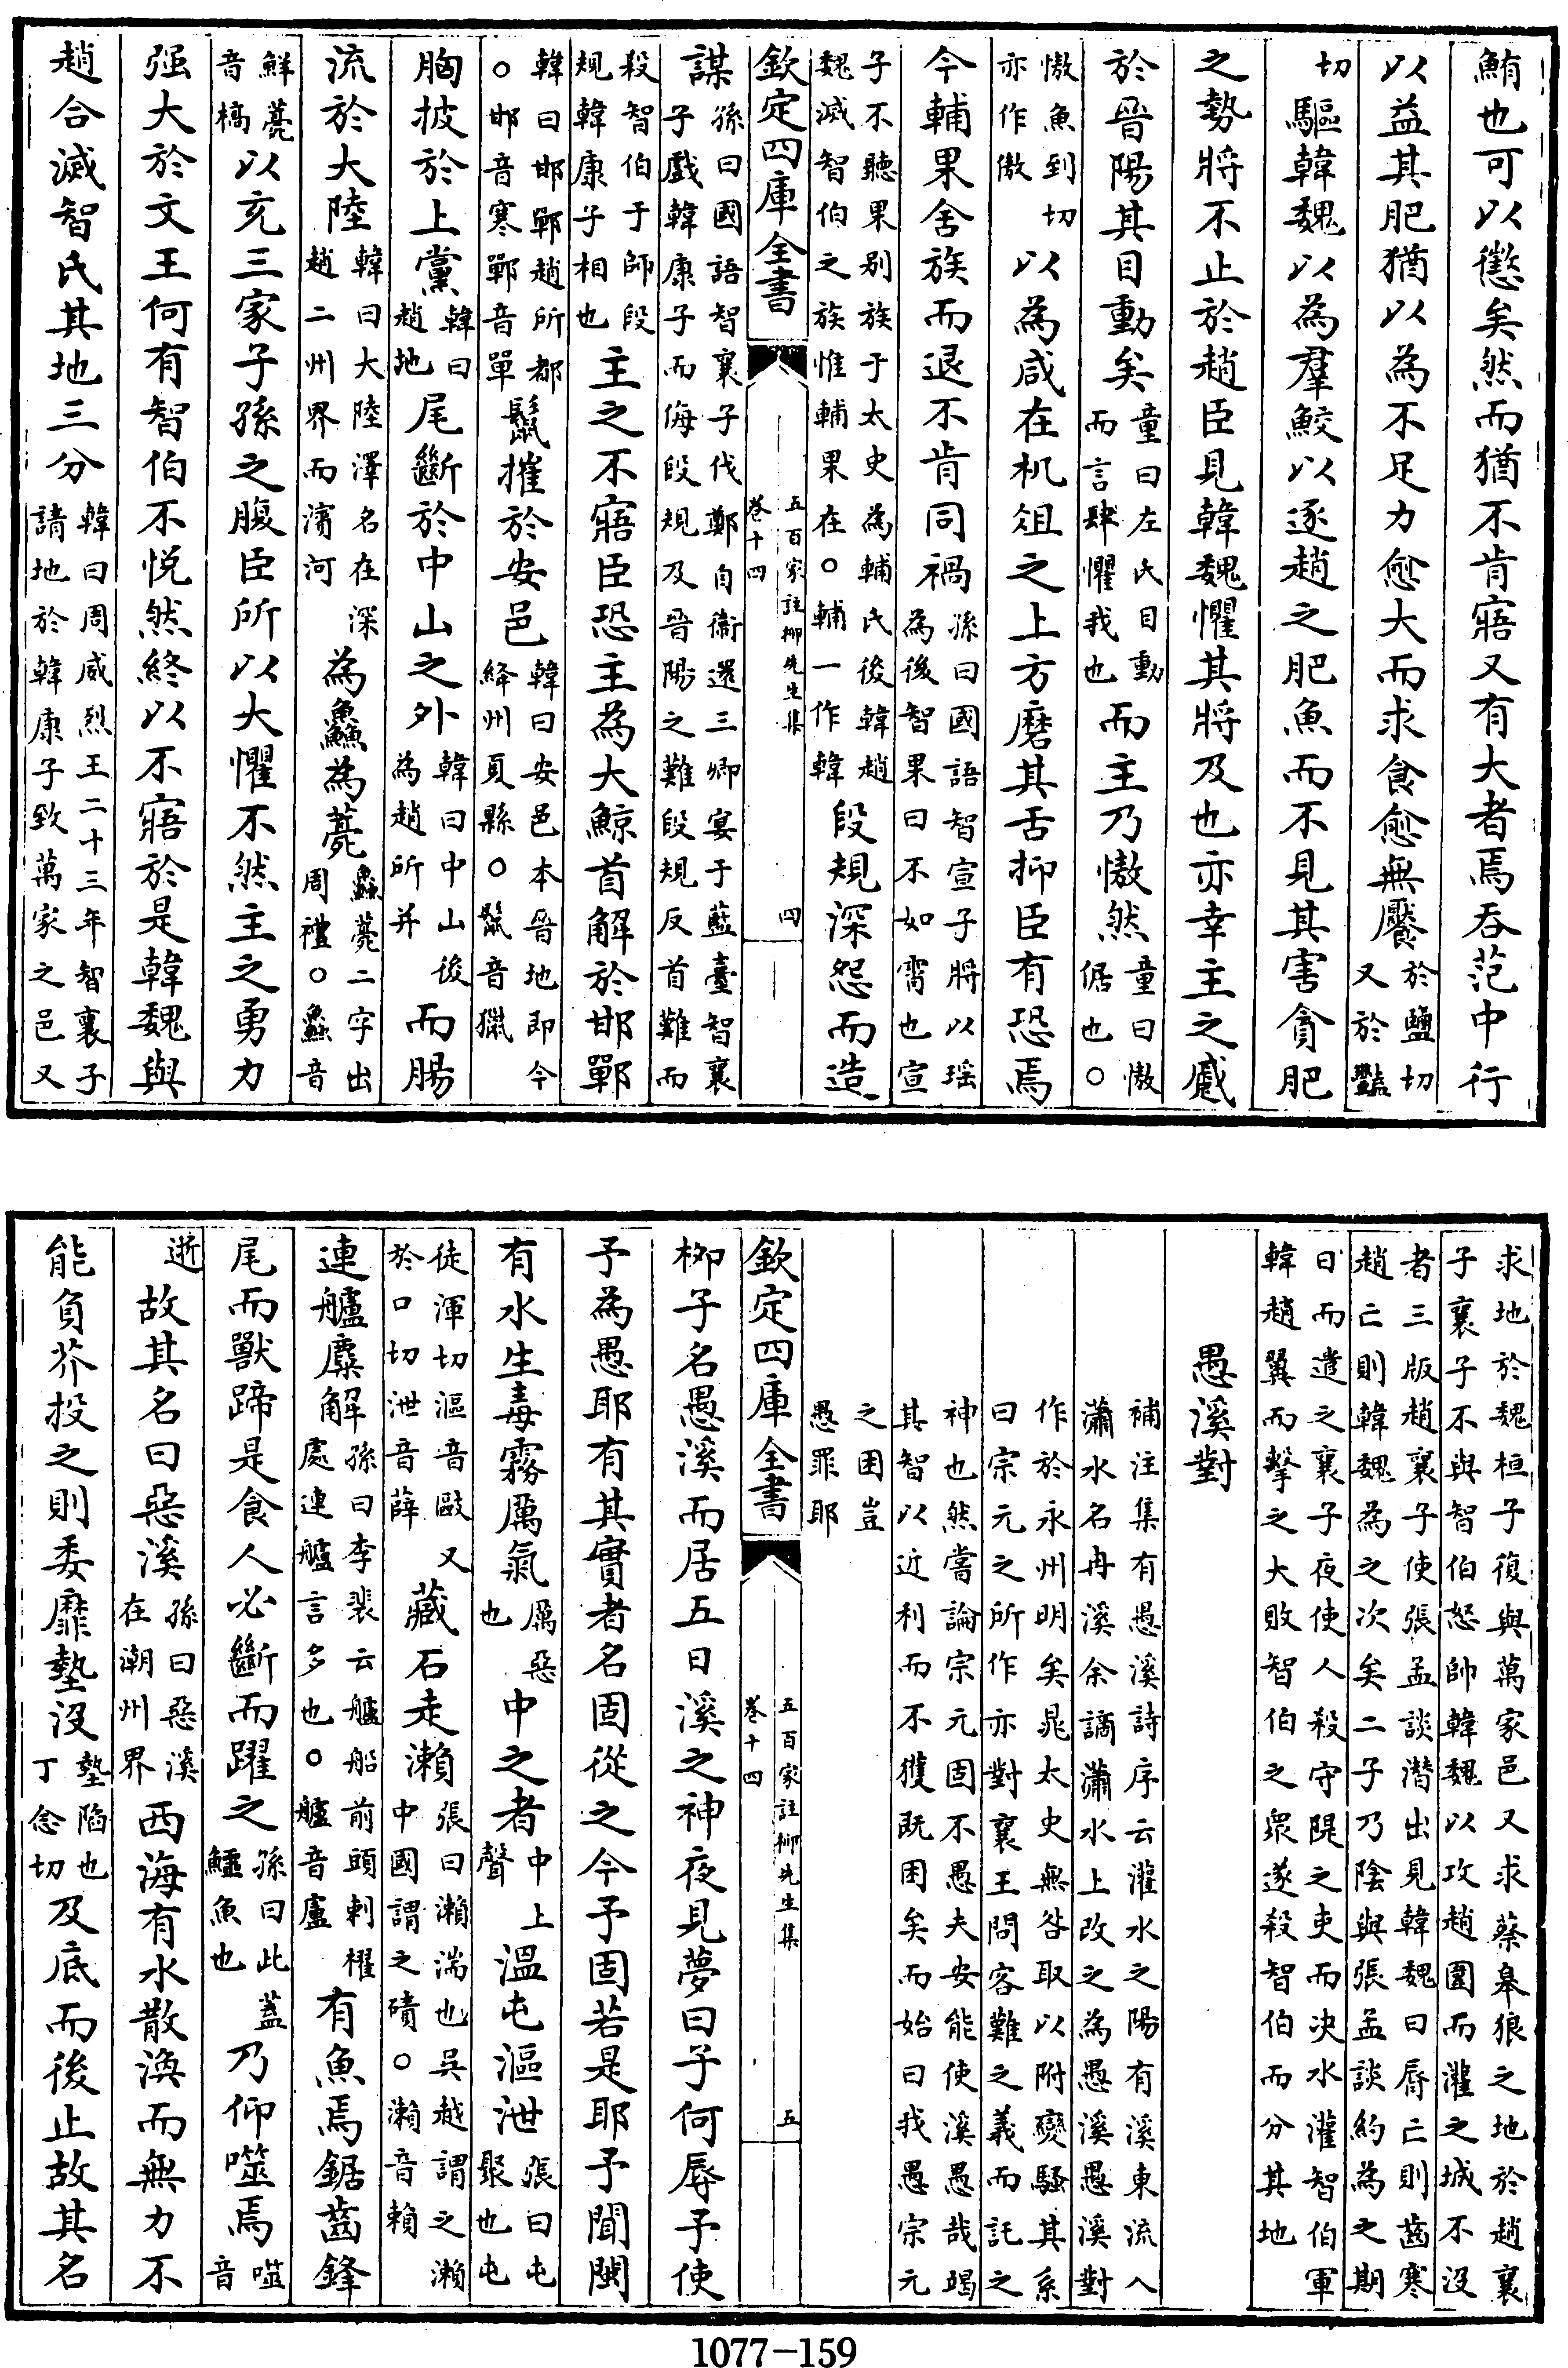 鮪也可以懲矣然而猶不肯寤又有大者焉吞范中行
以益其肥猶以為不足力愈大而求食愈無饜於鹽切又於豔
切驅韓魏以為羣鮫以逐趙之肥魚而不見其害貪肥
之勢將不止於趙臣見韓魏懼其將及也亦幸主之蹙
於晉陽其目動矣童曰左氏目動而言肆懼我也而主乃慠然童曰慠倨也○
慠魚到切亦作傲以為咸在机俎之上方磨其舌抑臣有恐焉
今輔果舍族而退不肯同禍孫曰國語智宣子將以瑶為後智果曰不如霄也宣
子不聽果别族于太史為輔氏後韓趙魏滅智伯之族惟輔果在○輔一作韓段規深怨而造
欽定四庫全書
五百家註柳先生集
卷十四
四
謀孫曰國語智襄子伐鄭自衞還三卿宴于藍臺智襄子戲韓康子而侮段規及晉陽之難段規反首難而
殺智伯于師段規韓康子相也主之不寤臣恐主為大鯨首解於邯鄲
韓曰邯鄲趙所都○邯音寒鄲音單鬣摧於安邑韓曰安邑本晉地即今絳州夏縣○鬣音獵
胸披於上黨韓曰趙地尾斷於中山之外韓曰中山後為趙所并而腸
流於大陸韓曰大陸澤名在深趙二州界而濱河為鱻為薧鱻薧二字出周禮○鱻音
鮮薧音槁以充三家子孫之腹臣所以大懼不然主之勇力
强大於文王何有智伯不悦然終以不寤於是韓魏與
趙合滅智氏其地三分韓曰周威烈王二十三年智襄子請地於韓康子致萬家之邑又
求地於魏桓子復與萬家邑又求蔡皋狼之地於趙襄子襄子不與智伯怒帥韓魏以攻趙圍而灌之城不沒
者三版趙襄子使張孟談潛出見韓魏曰脣亡則齒寒趙亡則韓魏為之次矣二子乃陰與張孟談約為之期
日而遣之襄子夜使人殺守隄之吏而决水灌智伯軍韓趙翼而擊之大敗智伯之衆遂殺智伯而分其地
愚溪對
補注集有愚溪詩序云灌水之陽有溪東流入瀟水名冉溪余謫瀟水上改之為愚溪愚溪對
作於永州明矣晁太史無咎取以附變騷其系曰宗元之所作亦對襄王問客難之義而託之
神也然嘗論宗元固不愚夫安能使溪愚哉竭其智以近利而不獲既困矣而始曰我愚宗元
之困豈愚罪耶
欽定四庫全書
五百家註柳先生集
卷十四
五
柳子名愚溪而居五日溪之神夜見夢曰子何辱予使
予為愚耶有其實者名固從之今予固若是耶予聞閩
有水生毒霧厲氣厲惡也中之者中上聲溫屯漚泄張曰屯聚也屯
徒渾切漚音敺又於口切泄音薛藏石走瀨張曰瀨湍也吳越謂之瀨中國謂之磧○瀨音賴
連艫麋解孫曰李裴云艫船前頭刺櫂處連艫言多也○艫音盧有魚焉鋸齒鋒
尾而獸蹄是食人必斷而躍之孫曰此蓋鱷魚也乃仰噬焉噬音
逝故其名曰惡溪孫曰惡溪在潮州界西海有水散渙而無力不
能負芥投之則委靡墊沒墊陷也丁念切及底而後止故其名
1077-159